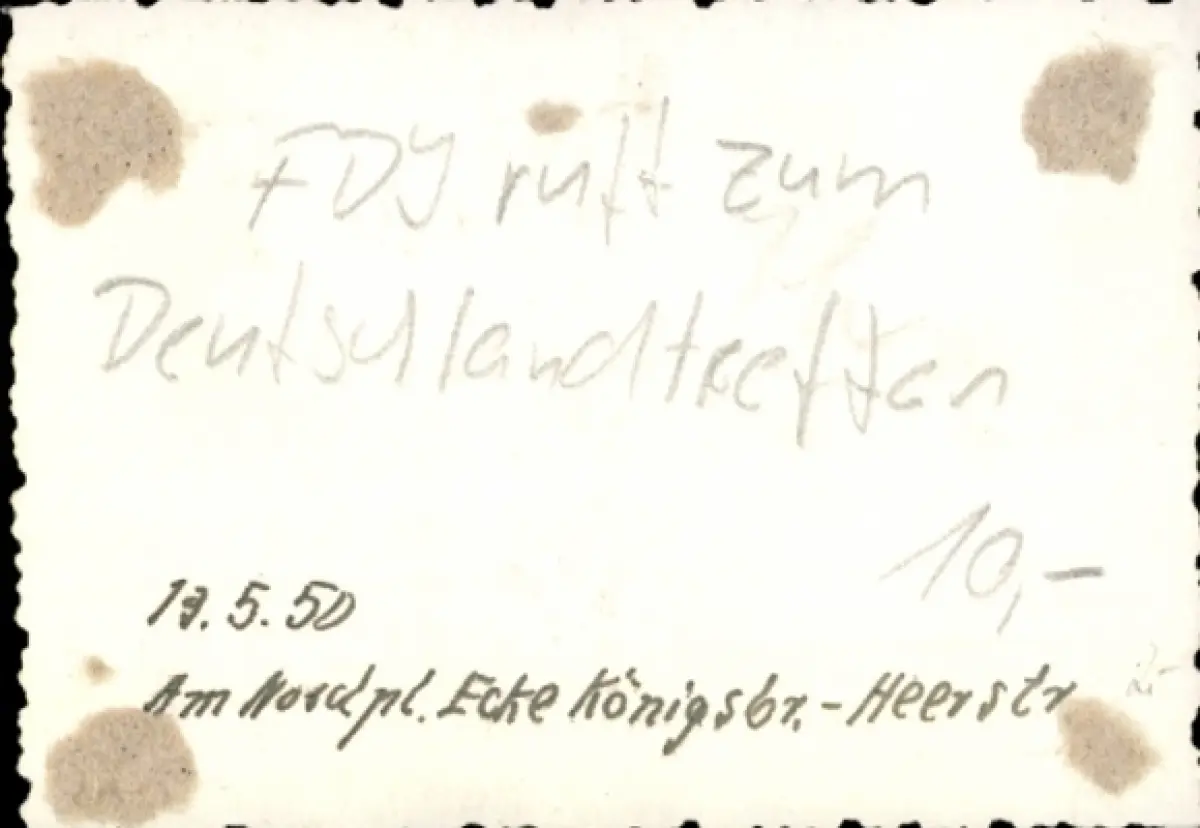 FDJ ruft zum
Deutschlandtreffen
10,-
5.50
Am Nordpl. Ecke Königsbr.-Heerstr